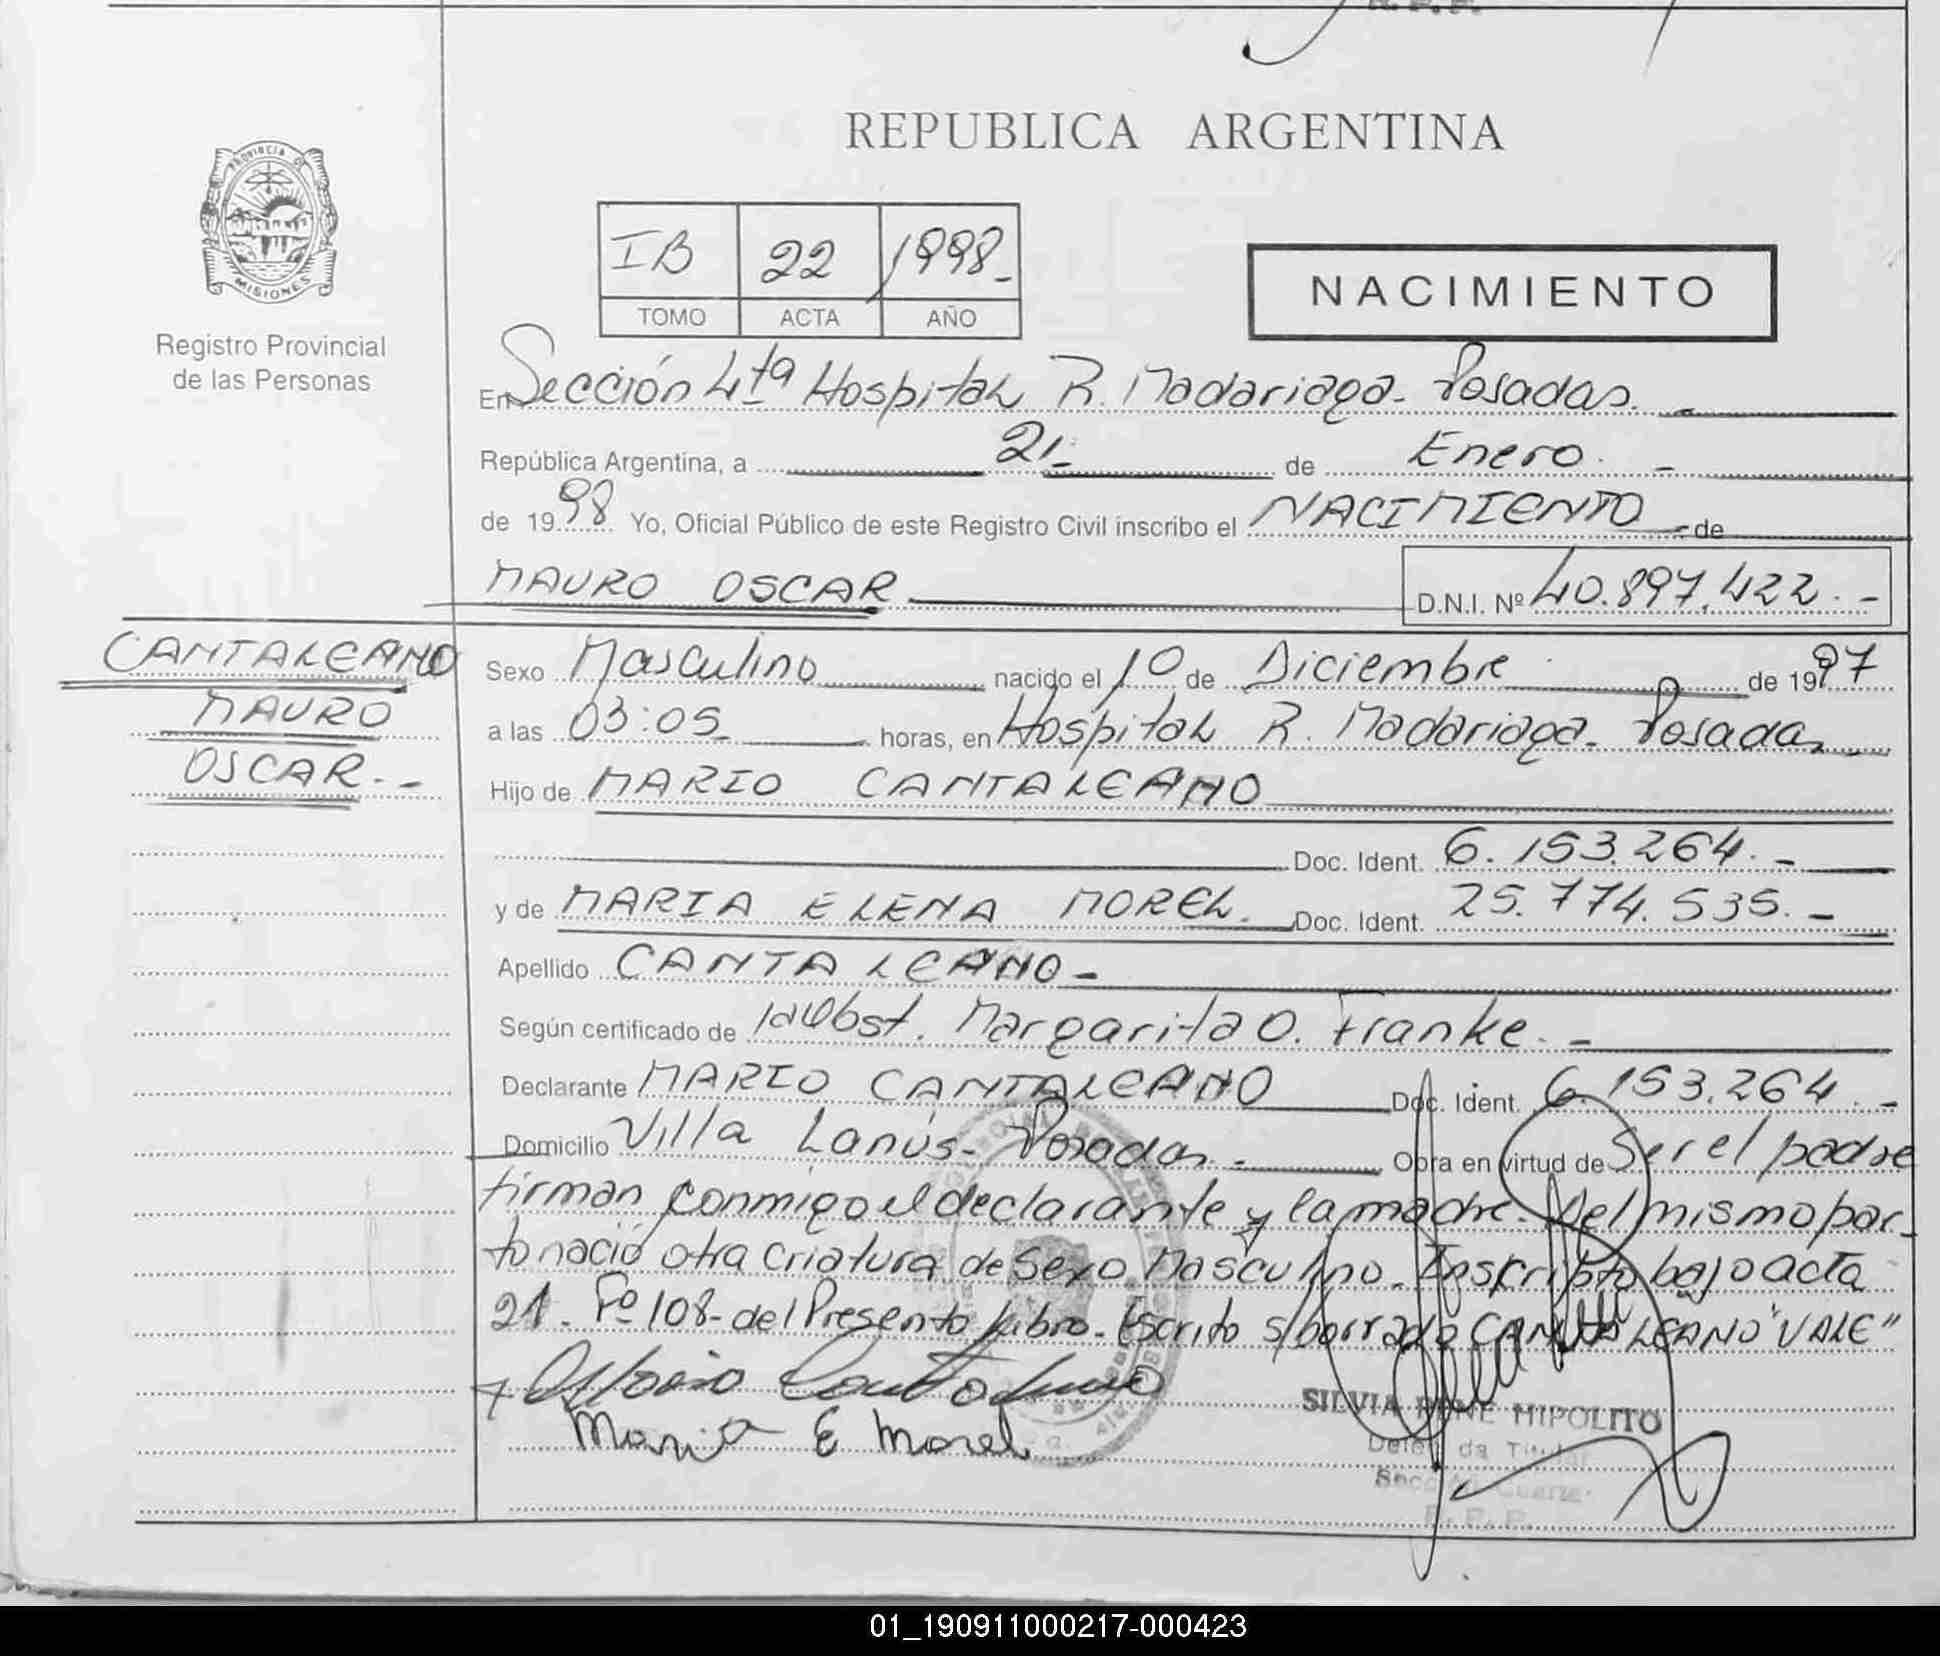 REPUBLICA ARGENTINA
PROVINCIA DE
MISIONES
Registro Provincial
de las Personas
IB 22 1998.-
TOMO ACTA AÑO
NACIMIENTO
En Sección 4ta Hospital R. Madariaga. Posadas.-
República Argentina, a 21.- de Enero.-
de 1998 Yo, Oficial Público de este Registro Civil inscribo el NACIMIENTO de
MAURO OSCAR D.N.I. Nº 40.897.422.-
CANTALEANO
MAURO
OSCAR.-
Sexo Masculino nacido el 10 de Diciembre de 1997
a las 03:05 horas, en Hospital R. Madariaga. Posadas
Hijo de MARIO CANTALEANO
Doc. Ident. 6.153.264.-
y de MARIA ELENA MOREL. Doc. Ident. 25.774.535.-
Apellido CANTALEANO-
Según certificado de la Obst. Margarita O. Franke.-
Declarante MARIO CANTALEANO Doc. Ident. 6.153.264.-
Domicilio Villa Lanús- Posadas.- Obra en virtud de Ser el padre
firman conmigo el declarante y la madre. Del mismo par-
to nació otra criatura de Sexo Masculino. Inscripto bajo acta
21. Fº 108- del Presente Libro. Escrito s/borrado CANTALEANO "VALE"
Maria E Morel
SILVIA RENE HIPOLITO
Titular
R.P.P.
01_190911000217-000423